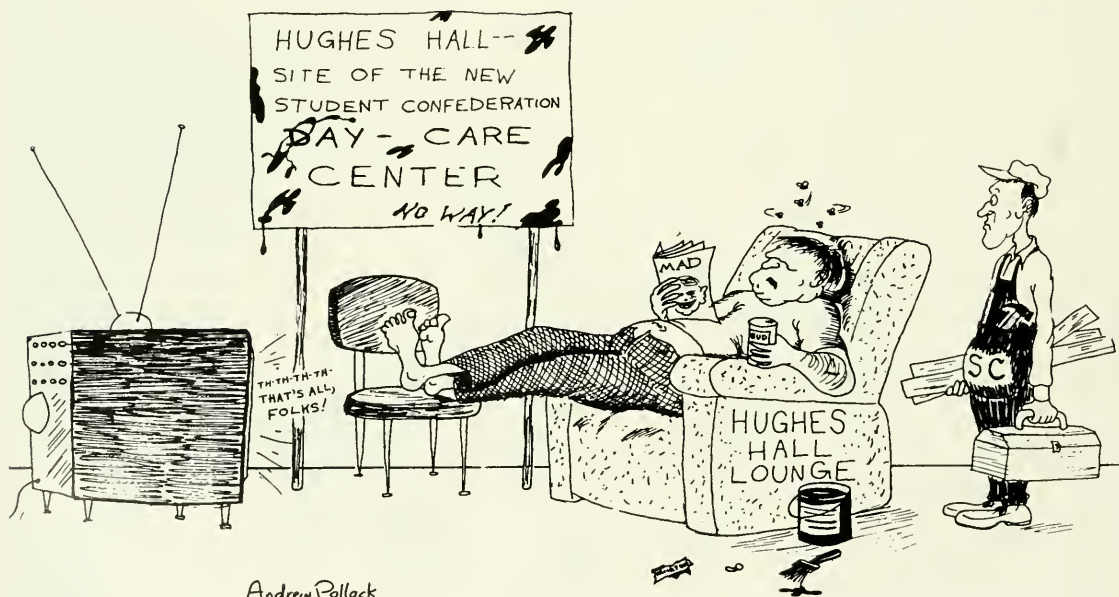 HUGHES HALL--
SITE OF THE NEW
STUDENT CONFEDERATION
DAY - CARE
CENTER
NO WAY!
TH-TH-TH-TH-
THAT'S ALL,
FOLKS!
MAD
BUD
HUGHES
HALL
LOUNGE
SC
Andrew Pollack